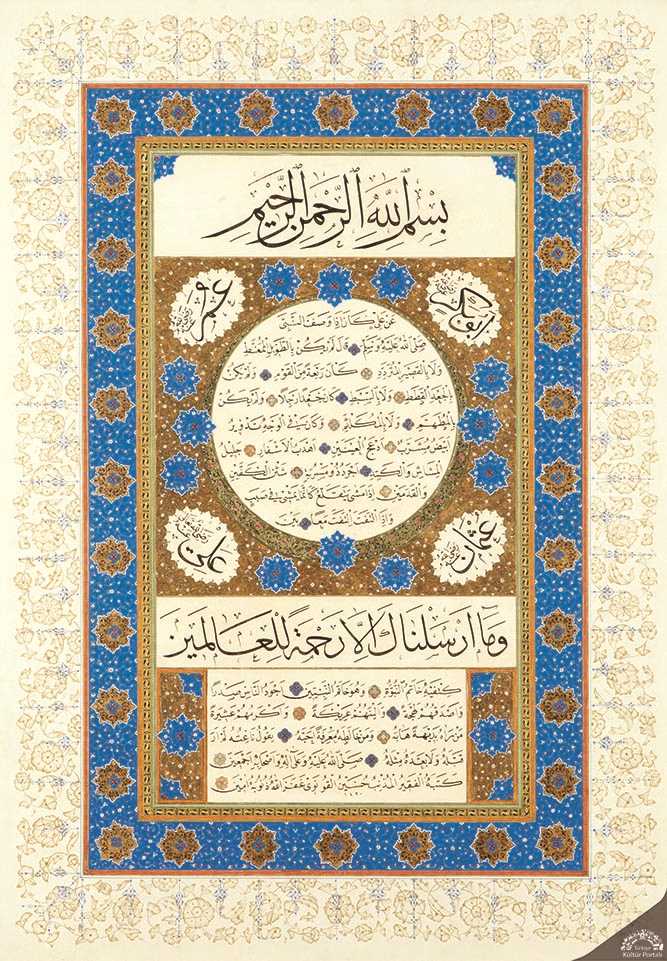 بِسْمِ اللهِ الرَّحْمٰنِ الرَّحِيمِ
ابوبكر رضي الله عنه
عمر رضي الله عنه
عن علي كان اذا وصف النبي
صلى الله عليه وسلم قال لم يكن بالطويل الممغط
ولا بالقصير المتردد كان ربعة من القوم ولم يكن
بالجعد القطط ولا بالسبط كان جعدا رجلا ولم يكن
بالمطهم ولا بالمكلثم وكان في الوجه تدوير
ابيض مشرب ادعج العينين اهدب الاشفار جليل
المشاش والكتد اجرد ذو مسربة شثن الكفين
والقدمين اذا مشى يتقلع كانما يمشي في صبب
واذا التفت التفت معا بين
عثمان رضي الله عنه
علي رضي الله عنه
وَمَا اَرْسَلْنَاكَ اِلَّا رَحْمَةً لِلْعَالَمِينَ
كتفيه خاتم النبوة وهو خاتم النبيين اجود الناس صدرا
واصدقهم لهجة والينهم عريكة واكرمهم عشيرة
من رآه بديهة هابه ومن خالطه معرفة احبه يقول ناعته لم ار
قبله ولا بعده مثله صلى الله عليه وعلى آله واصحابه اجمعين
كتبه الفقير المذنب حسين القونوي غفر الله ذنوبه آمين
Türkiye
Kültür Portalı